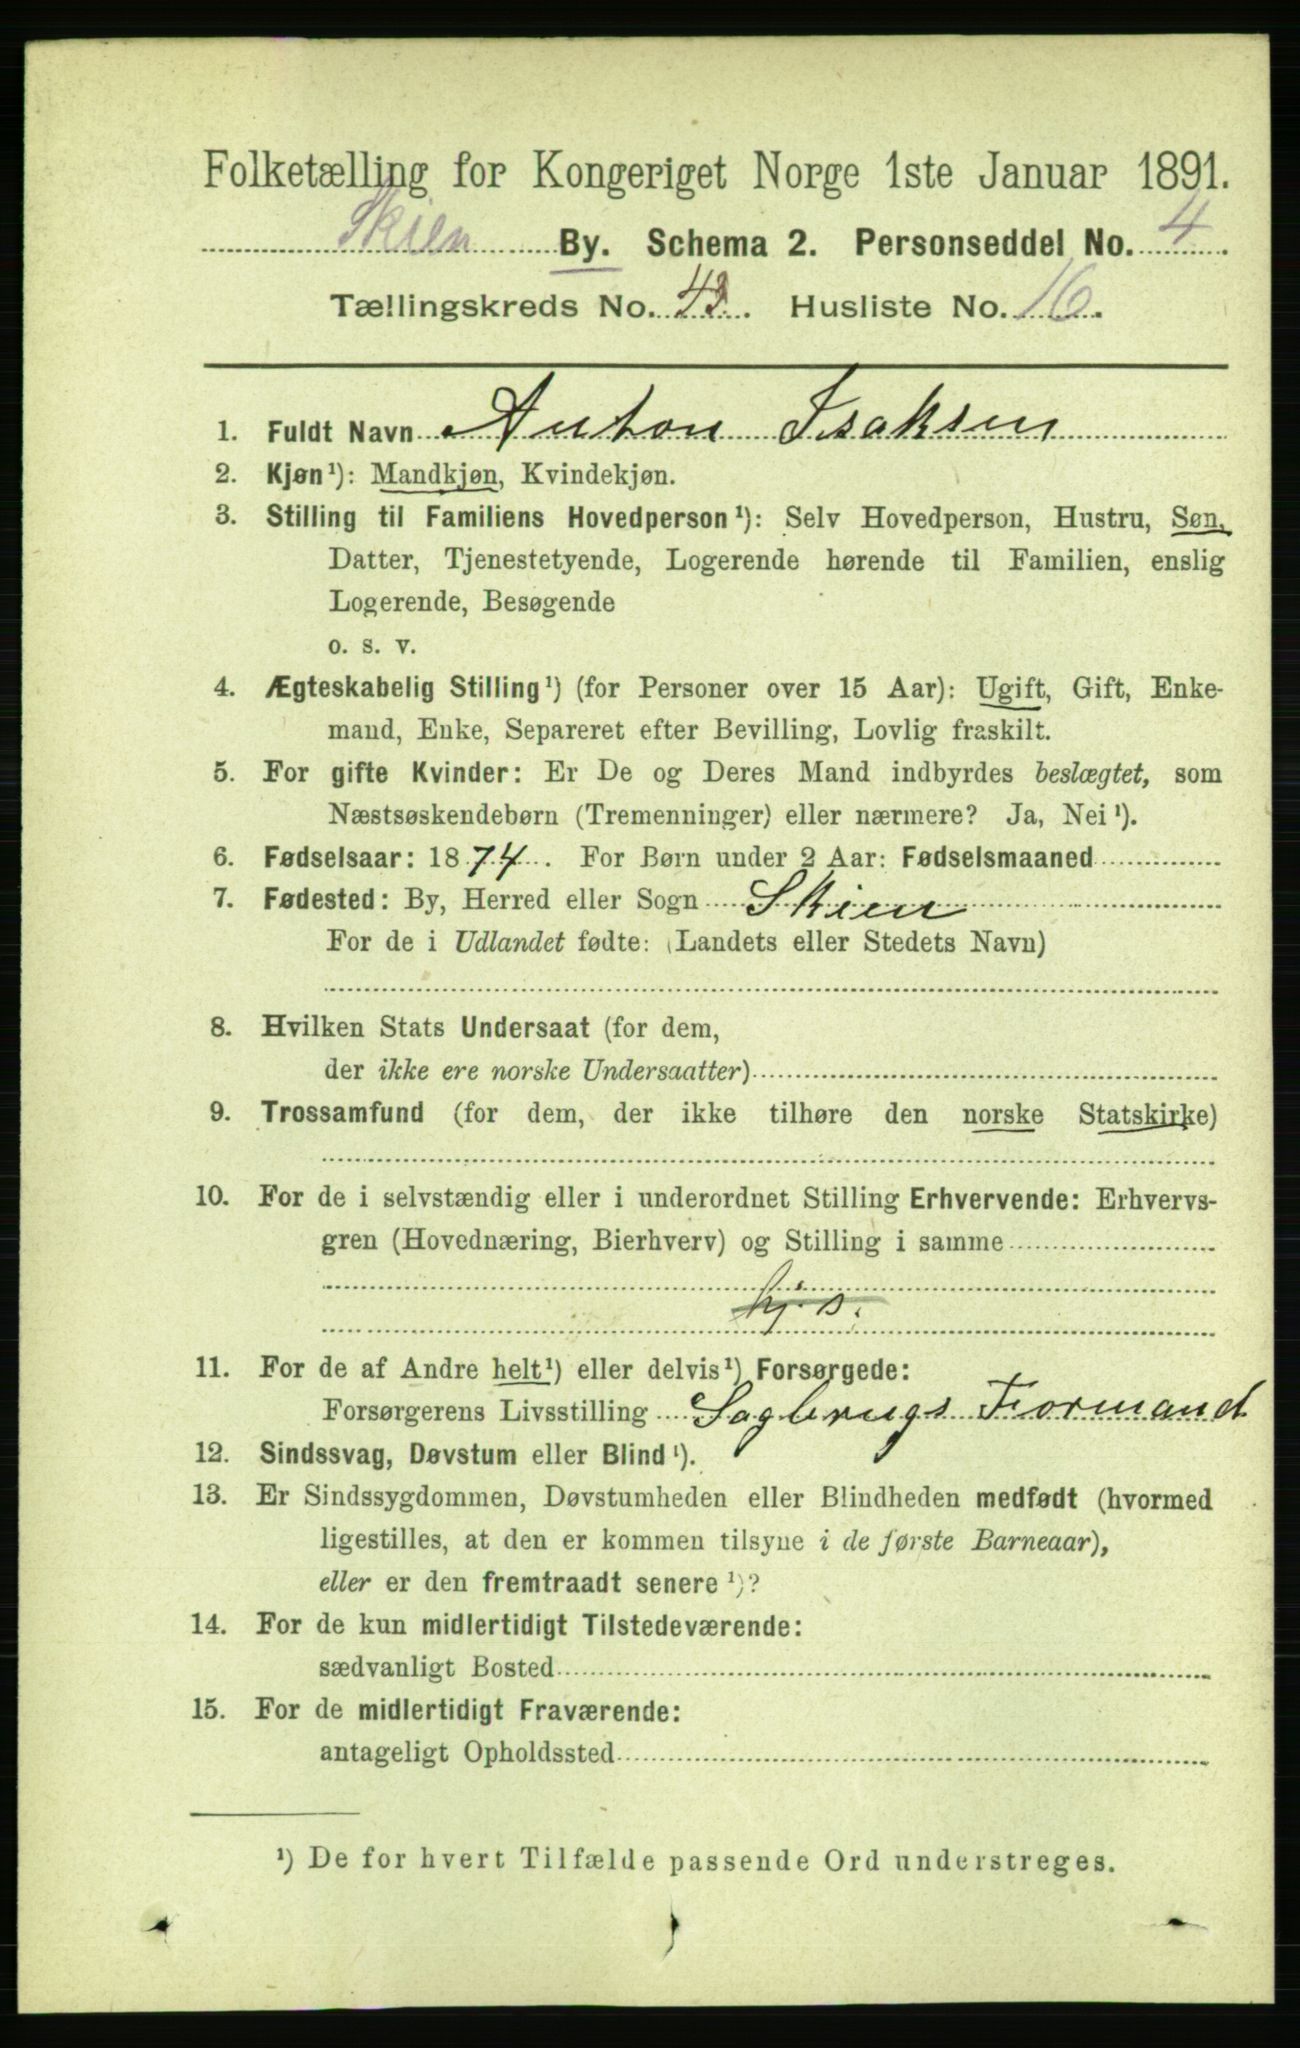 Folketælling for Kongeriget Norge 1ste Januar 1891.
Skien By. Schema 2. Personseddel No. 4.
Tællingskreds No. 43. Husliste No. 16.
1. Fuldt Navn Anton Isaksen
2. Kjøn¹): Mandkjøn, Kvindekjøn.
3. Stilling til Familiens Hovedperson¹): Selv Hovedperson, Hustru, Søn,
Datter, Tjenestetyende, Logerende hørende til Familien, enslig
Logerende, Besøgende
o. s. v.
4. Ægteskabelig Stilling¹) (for Personer over 15 Aar): Ugift, Gift, Enke-
mand, Enke, Separeret efter Bevilling, Lovlig fraskilt.
5. For gifte Kvinder: Er De og Deres Mand indbyrdes beslægtet, som
Næstsøskendebørn (Tremenninger) eller nærmere? Ja, Nei¹).
6. Fødselsaar: 1874. For Børn under 2 Aar: Fødselsmaaned
7. Fødested: By, Herred eller Sogn Skien
For de i Udlandet fødte: (Landets eller Stedets Navn)
8. Hvilken Stats Undersaat (for dem,
der ikke ere norske Undersaatter)
9. Trossamfund (for dem, der ikke tilhøre den norske Statskirke)
10. For de i selvstændig eller i underordnet Stilling Erhvervende: Erhvervs-
gren (Hovednæring, Bierhverv) og Stilling i samme
hj. s.
11. For de af Andre helt¹) eller delvis¹) Forsørgede:
Forsørgerens Livsstilling Sagbrugs Formand
12. Sindssvag, Døvstum eller Blind¹).
13. Er Sindssygdommen, Døvstumheden eller Blindheden medfødt (hvormed
ligestilles, at den er kommen tilsyne i de første Barneaar),
eller er den fremtraadt senere¹)?
14. For de kun midlertidigt Tilstedeværende:
sædvanligt Bosted
15. For de midlertidigt Fraværende:
antageligt Opholdssted
¹) De for hvert Tilfælde passende Ord understreges.